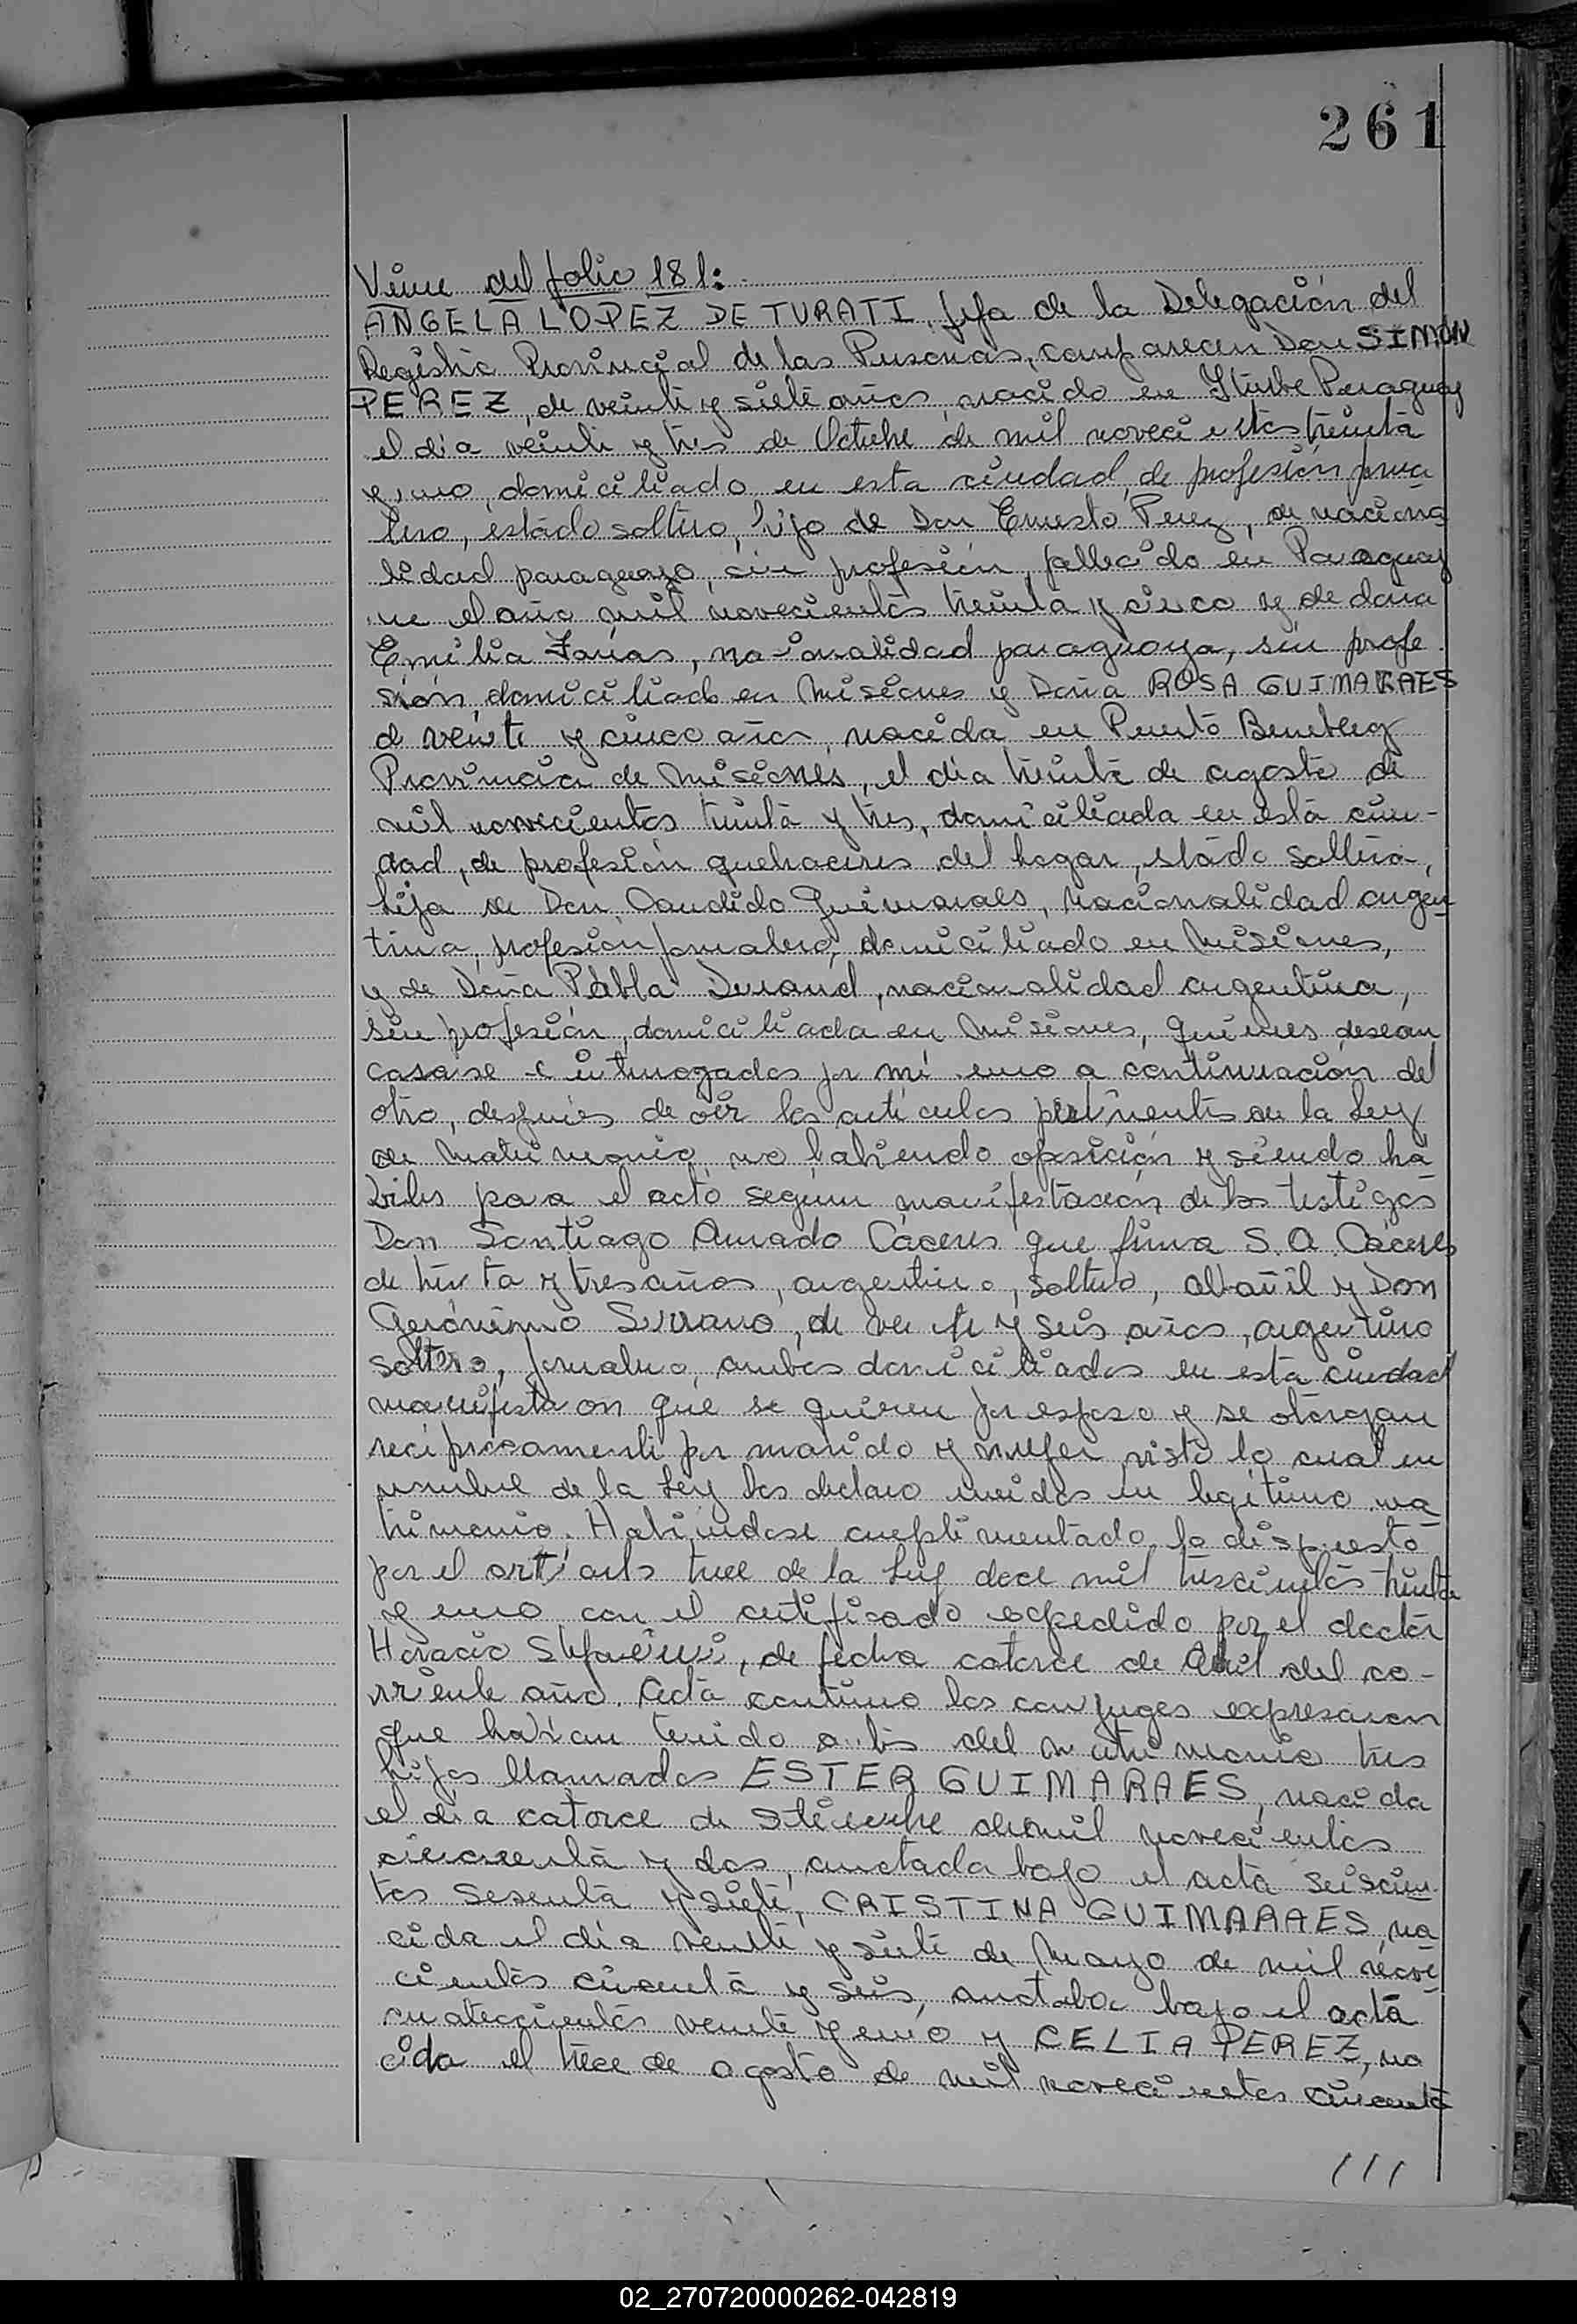 261
Viene del folio 181:
ANGELA LOPEZ DE TURATI, Jefa de la Delegación del
Registro Provincial de las Personas, comparecen Don SIMON
PEREZ, de veinti y siete años, nacido en Iturbe Paraguay
el dia veinti y tres de Octubre de mil novecientos treinta
y uno, domiciliado en esta ciudad, de profesión jorna
lero, estado soltero, hijo de Don Ernesto Perez, de naciona
lidad paraguaya, sin profesión, fallecido en Paraguay
en el año mil novecientos treinta y cinco y de doña
Emilia Farias, nacionalidad paraguaya, sin profe
sión, domiciliada en Misiones y Doña ROSA GUIMARAES
de veinte y cinco años, nacida en Puerto Bemberg
Provincia de Misiones, el dia treinta de agosto de
mil novecientos treinta y tres, domiciliada en esta ciu-
dad, de profesión quehaceres del hogar, estado soltera,
hija de Don Candido Guimaraes, nacionalidad argen
tina, profesion jornalero, domiciliado en Misiones,
y de Doña Pabla Durand, nacionalidad argentina,
sin profesión, domiciliada en Misiones, quienes desean
casarse e interrogados por mí uno a continuación del
otro, después de oír los articulos pertinentes de la Ley
de Matrimonio, no habiendo oposición y siendo há
biles para el acto según manifestación de los testigos
Don Santiago Amado Cáceres que firma S. A. Cáceres
de treinta y tres años, argentino, soltero, albañil y Don
Gerónimo Serrano, de veinte y seis años, argentino
soltero, jornalero, ambos domiciliados en esta ciudad
manifestaron que se quieren por esposo y se otorgan
recíprocamente por marido y mujer visto lo cual en
nombre de la Ley los declaro unidos en legitimo ma
trimonio. Habiendose cumplimentado lo dispuesto
por el articulo trece de la Ley doce mil trescientos treinta
y uno con el certificado expedido por el doctor
Horacio Stefanini, de fecha catorce de Abril del co-
rriente año. Acto continuo los conyuges expresaron
que habían tenido antes del matrimonio tres
hijos llamados ESTER GUIMARAES, nacida
el dia catorce de Setiembre de mil novecientos
cincuenta y dos, anotada bajo el acta seiscien
tos sesenta y siete, CRISTINA GUIMARAES, na
cida el día veinte y siete de Mayo de mil nove
cientos cincuenta y seis, anotada bajo el acta
cuatrocientos veinte y uno y CELIA PEREZ, na
cida el trece de agosto de mil novecientos cincuenta
///
02_270720000262-042819